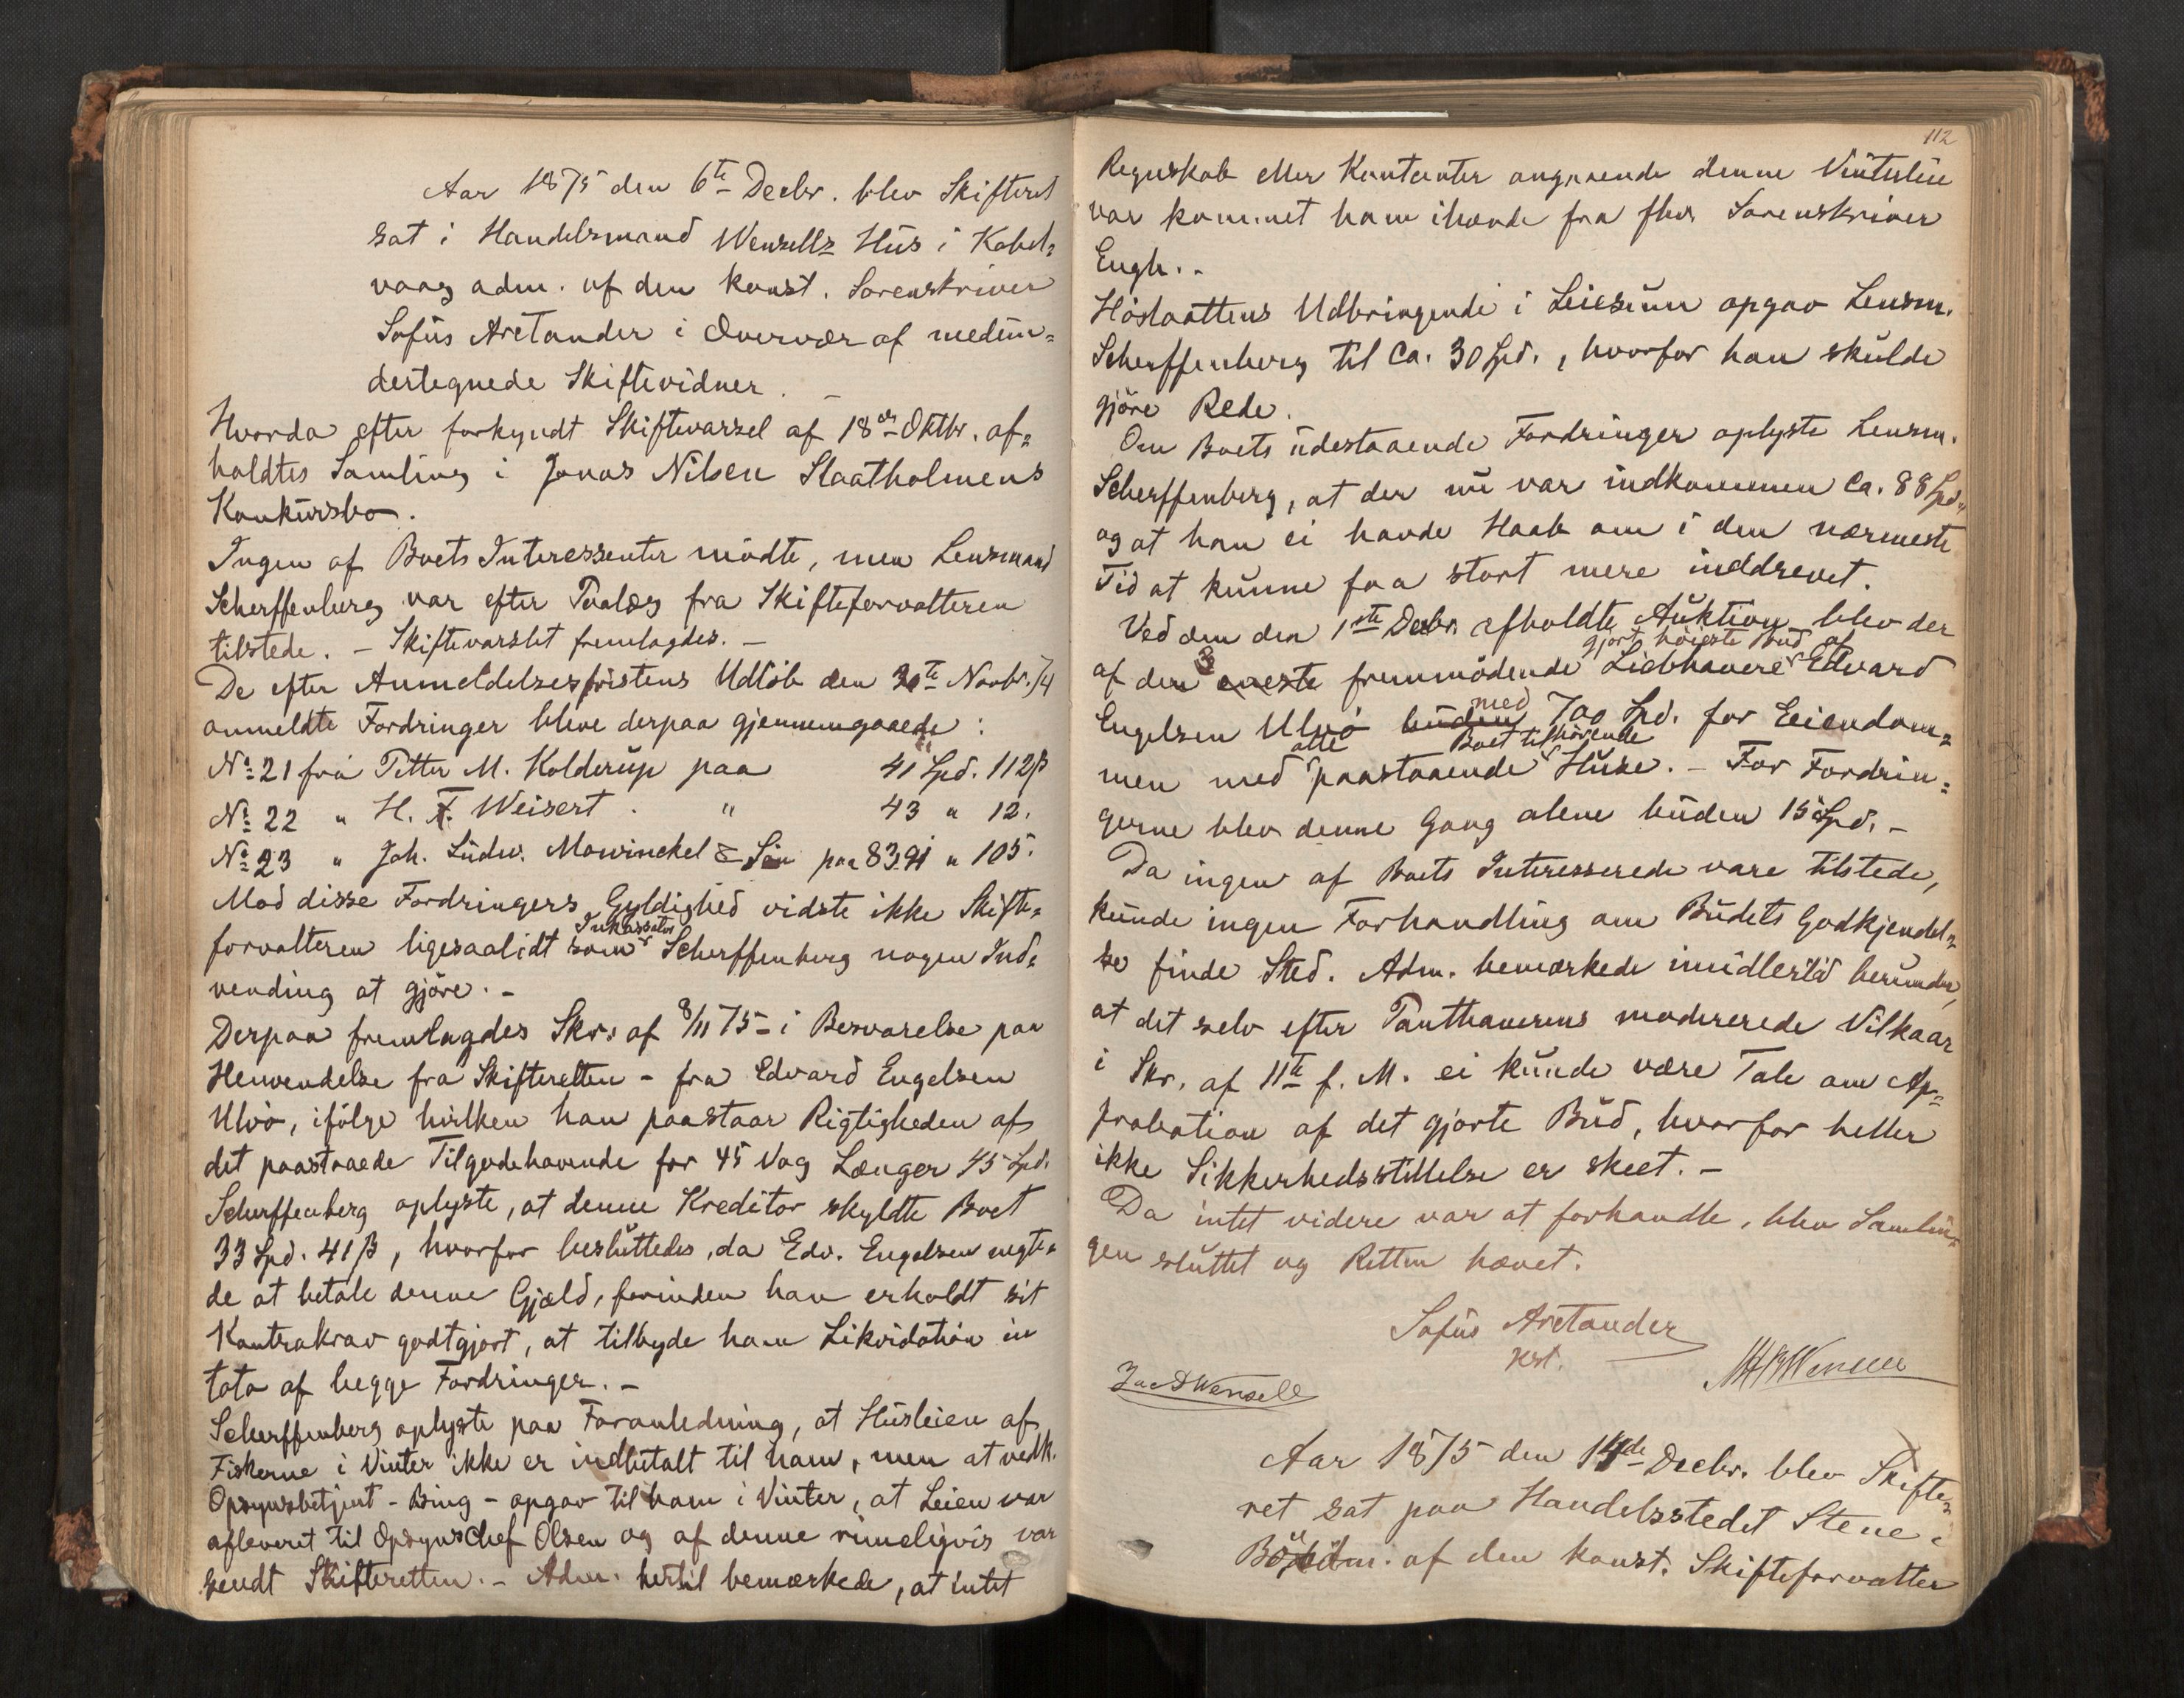 Aar 1875 den 6te Decbr. blev Skifteret
sat i Handelsmand Wensells Hus i Kabel=
vaag adm. af den konst. Sorenskriver
Sofus Arctander i Overvær af medun=
dertegnede Skiftevidner. –
Hvorda efter forkyndt Skiftevarsel af 18de Oktbr. af=
holdtes Samling i Jonas Nilsen Slaatholmens
Konkursbo.
Ingen af Boets Interessenter mödte, men Lensmand
Scherffenberg var efter Paalæg fra Skifteforvalteren
tilstede. – Skiftevarslet fremlagdes. –
De efter Anmeldelsesfristens Udlöb den 30te Novbr. 74
anmeldte Fordringer bleve derpaa gjennemgaaede :
No. 21 fra Petter M. Kolderup paa 41 Spd. 112 ß
No. 22 " H. F. Weisert . " 43 " 12.
No. 23 " Joh. Ludw. Mowinckel & Sön paa 8391 " 105.
Mod disse Fordringers Gyldighed vidste ikke Skifte=
forvalteren ligesaalidt som Inkassator Scherffenberg nogen Ind=
vending at gjöre. –
Derpaa fremlagdes Skr. af 8/11 75 – i Besvarelse paa
Henvendelse fra Skifteretten – fra Edvard Engelsen
Ulvö, ifölge hvilken han paastaar Rigtigheden af
det paastaaede Tilgodehavende for 45 Vog Længer 45 Spd.
Scherffenberg oplyste, at denne Kreditor skyldte Boet
33 Spd. 41 ß, hvorfor besluttedes, da Edv. Engelsen negte=
de at betale denne Gjæld, forinden han erholdt sit
Kontrakrav godtgjort, at tilbyde ham Likvidation in
toto af begge Fordringer. –
Scherffenberg oplyste paa Foranledning, at Husleien af
Fiskerne i Vinter ikke er indbetalt til ham, men at vedk.
Opsynsbetjent – Bing – opgav til ham i Vinter, at Leien var
afleveret til Opsynschef Olsen og af denne rimeligvis var
sendt Skifteretten. – Adm. hertil bemærkede, at intet
112
Regnskab eller Kontanter angaaende denne Vinterleie
var kommet ham ihænde fra fhv. Sorenskriver
Engh. –
Höslaattens Udbringende i Leiesum opgav Lensm.
Scherffenberg til Ca. 30 Spd., hvorfor han skulde
gjöre Rede.
Om Boets udestaaende Fordringer oplyste Lensm.
Scherffenberg, at der nu var indkommen Ca. 88 Spd.,
og at han ei havde Haab om i den nærmeste
Tid at kunne faa stort mere inddrevet.
Ved den den 1ste Decbr. afholdte Auktion blev der
gjort höieste Bud af
af den 3 eneste fremmödende Liebhavere Edvard
med
Engelsen Ulvö buden 700 Spd. for Eiendom=
atte Boet tilhörende
men med paastaaende Huse. – For Fordrin=
gerne blev denne Gang alene buden 15 Spd. –
Da ingen af Boets Interesserede vare tilstede,
kunde ingen Forhandling om Budets Godkjendel=
se finde Sted. Adm. bemærkede imidlertid herunder,
at det selv efter Panthaverens modererede Vilkaar
i Skr. af 11te f. M. ei kunde være Tale om Ap=
probation af det gjorte Bud, hvorfor heller
ikke Sikkerhedsstillelse er skeet. –
Da intet videre var at forhandle, blev Samlin=
gen sluttet og Retten hævet.
Sofus Arctander
kst.
Jac D Wensell
Aar 1875 den 14de Decbr. blev Skifte=
ret sat paa Handelsstedet Stene i
Bö adm. af den konst. Skifteforvalter